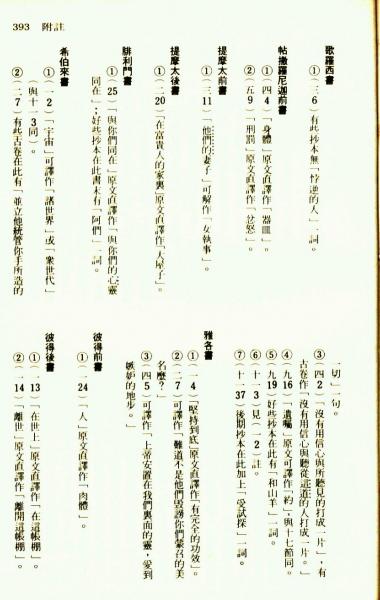 393 附註
歌羅西書
①(三6)有些抄本無「悖逆的人」一詞。
帖撒羅尼迦前書
①(四4)「身體」原文直譯作「器皿」。
②(五9)「刑罰」原文直譯作「忿怒」。
提摩太前書
①(三11)「他們的妻子」可解作「女執事」。
提摩太後書
①(二20)「在富貴人的家裏」原文直譯作「大屋子」。
腓利門書
①(25)「與你們同在」原文直譯作「與你們的心靈
同在」;好些抄本在此書末有「阿們」一詞。
希伯來書
①(一2)「宇宙」可譯作「諸世界」或「衆世代」
(與十一3同)。
②(二7)有些古卷在此有「並立他統管你手所造的
一切」一句。
③(四2)「沒有用信心與所聽見的打成一片」,有
古卷作「沒有用信心與聽從這道的人打成一片。」
④(九16)「遺囑」原文可譯作「約」,與十七節同。
⑤(九19)好些抄本在此有「和山羊」一詞。
⑥(十一3)見(一2)註。
⑦(十一37)後期抄本在此加上「受試探」一詞。
雅各書
①(一4)「堅持到底」原文直譯作「有完全的功效」。
②(二7)可譯作「難道不是他們毀謗你們蒙召的美
名麼?」
③(四5)可譯作「上帝安置在我們裏面的靈,愛到
嫉妒的地步。」
彼得前書
①(一24)「人」原文直譯作「肉體」。
彼得後書
①(一13)「在世上」原文直譯作「在這帳棚」。
②(一14)「離世」原文直譯作「離開這帳棚」。